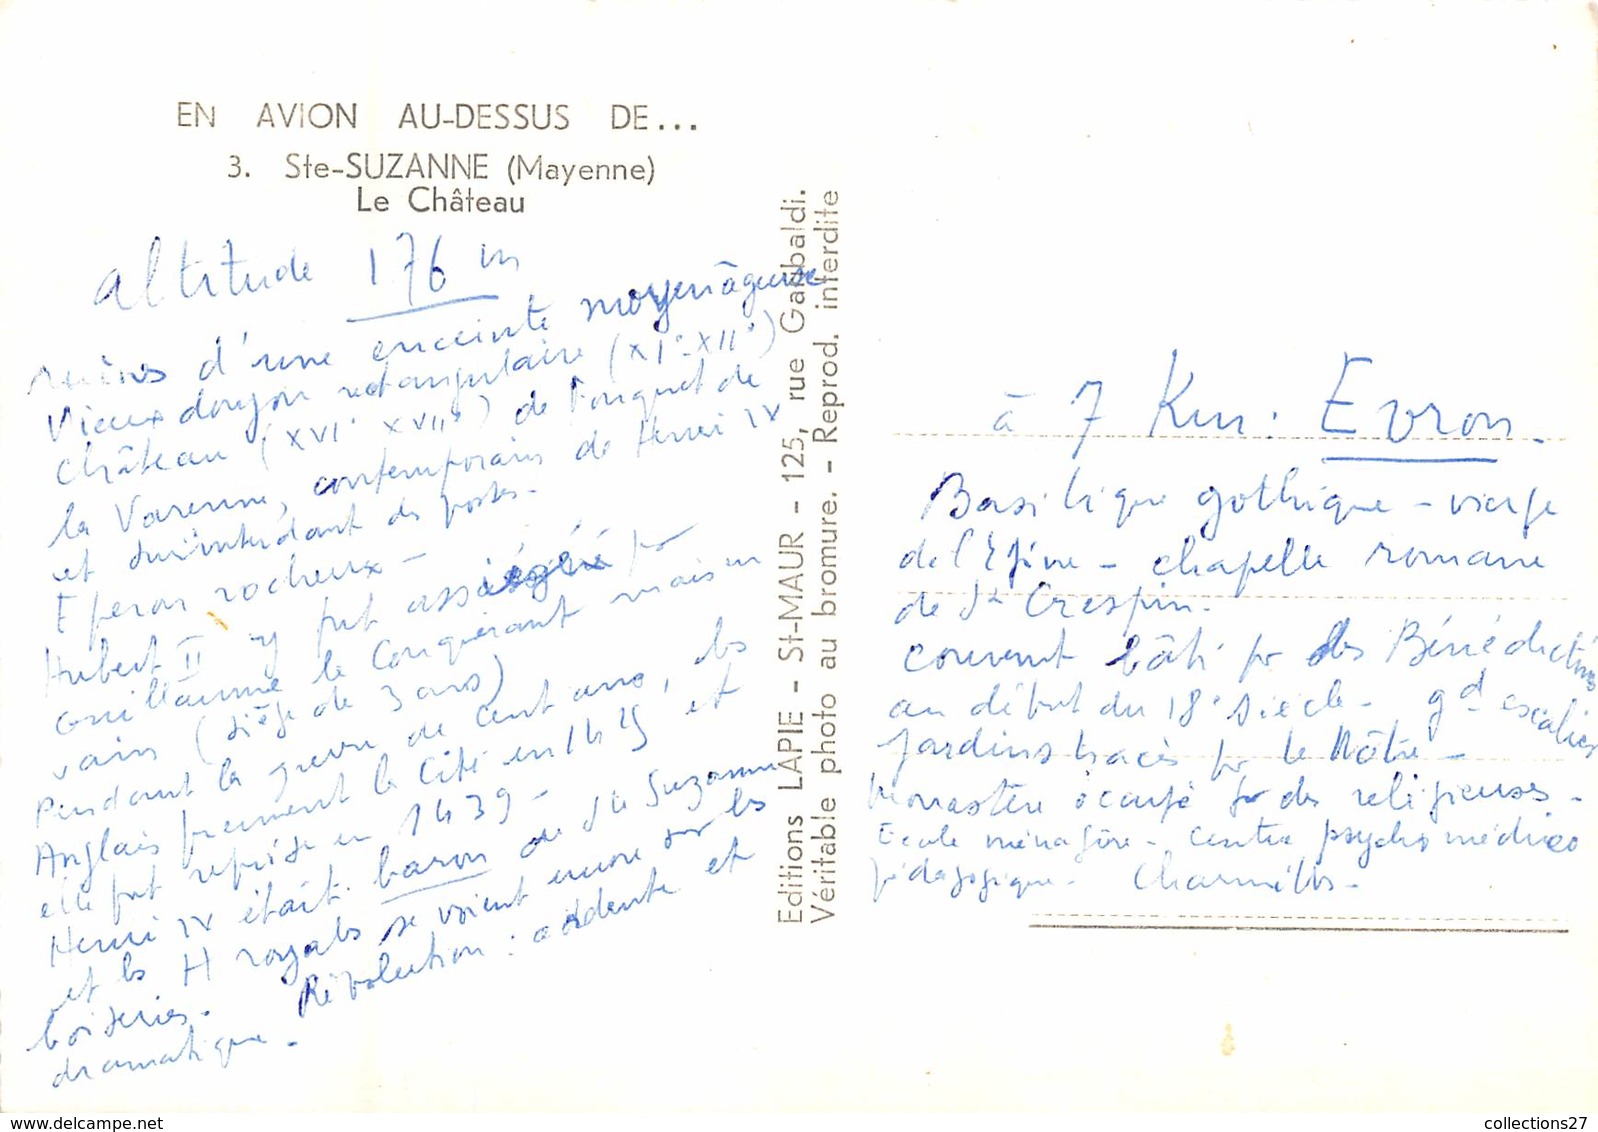 EN AVION AU-DESSUS DE...
3. Ste-SUZANNE (Mayenne)
Le Château
altitude 176 m
ruines d'une enceinte moyenâgeuse
Vieux donjon rectangulaire (XI° XII°)
château (XVI° XVII°) de Fouquet de
la Varenne, contemporain de Henri IV
et surintendant des postes.
Eperon rocheux -
Hubert II y fut assiégé par
Guillaume le Conquérant mais en
vain (siège de 3 ans)
Pendant la guerre de Cent ans, les
Anglais prennent la Cité en 1425 et
elle fut reprise en 1439 -
Henri IV était baron de Ste Suzanne
et les H royals se voient encore sur les
boiseries. Révolution : ardente et
dramatique -
Editions LAPIE - St-MAUR - 125, rue Garibaldi.
Véritable photo au bromure. - Reprod. interdite
à 7 Km : Evron.
Basilique gothique - vierge
de l'Epine - chapelle romane
de St Crespin.
couvent bâti par des Bénédictins
au début du 18° siècle - gd escalier
Jardins tracés par le Nôtre -
Monastère occupé par des religieuses -
Ecole ménagère - centre psycho médico
pédagogique - Charmilles -
collections27